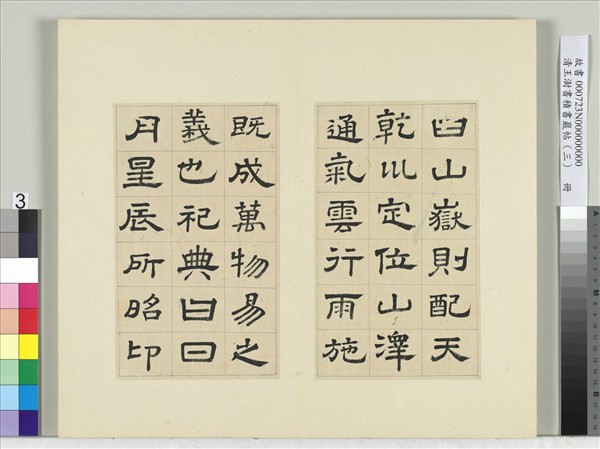 故書 000723N000000000
清王澍書積書巖帖（三） 冊
曰山嶽則配天
乾以定位山澤
通氣雲行雨施
既成萬物易之
義也祀典曰日
月星辰所昭卬
3
A
M
B